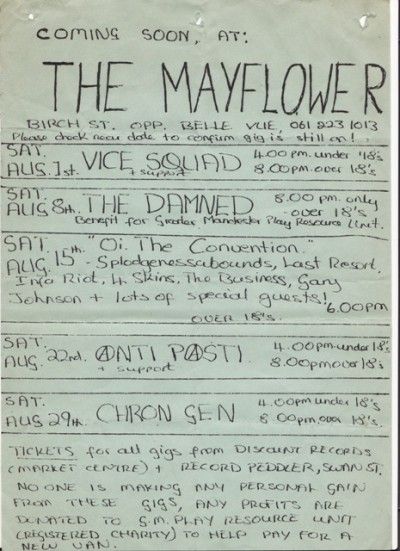 COMING SOON, AT:
THE MAYFLOWER
BIRCH ST. OPP. BELLE VUE, 061 223 1013
Please check near date to confirm gig is still on!
SAT. VICE SQUAD 4.00 pm. under 18's
AUG. 1st. + support 8.00pm. over 18's
SAT. THE DAMNED 8.00 pm. only
AUG 8th. over 18's
Benefit for Greater Manchester Play Resource Unit.
SAT. "Oi. The Convention."
AUG. 15th. - Splodgenessabounds, Last Resort,
Infa Riot, 4 Skins, The Business, Gary
Johnson + lots of special guests!
6.00pm
OVER 18's.
SAT. ANTI PASTI 4.00pm under 18's
AUG. 22nd. + support 8.00pm over 18's
SAT. CHRON GEN 4.00pm under 18's
AUG 29th. 8.00pm. over 18's
TICKETS for all gigs from DISCOUNT RECORDS
(MARKET CENTRE) + RECORD PEDDLER, SWAN ST.
NO ONE IS MAKING ANY PERSONAL GAIN
FROM THESE GIGS, ANY PROFITS ARE
DONATED TO G.M. PLAY RESOURCE UNIT
(REGISTERED CHARITY) TO HELP PAY FOR A
NEW VAN.